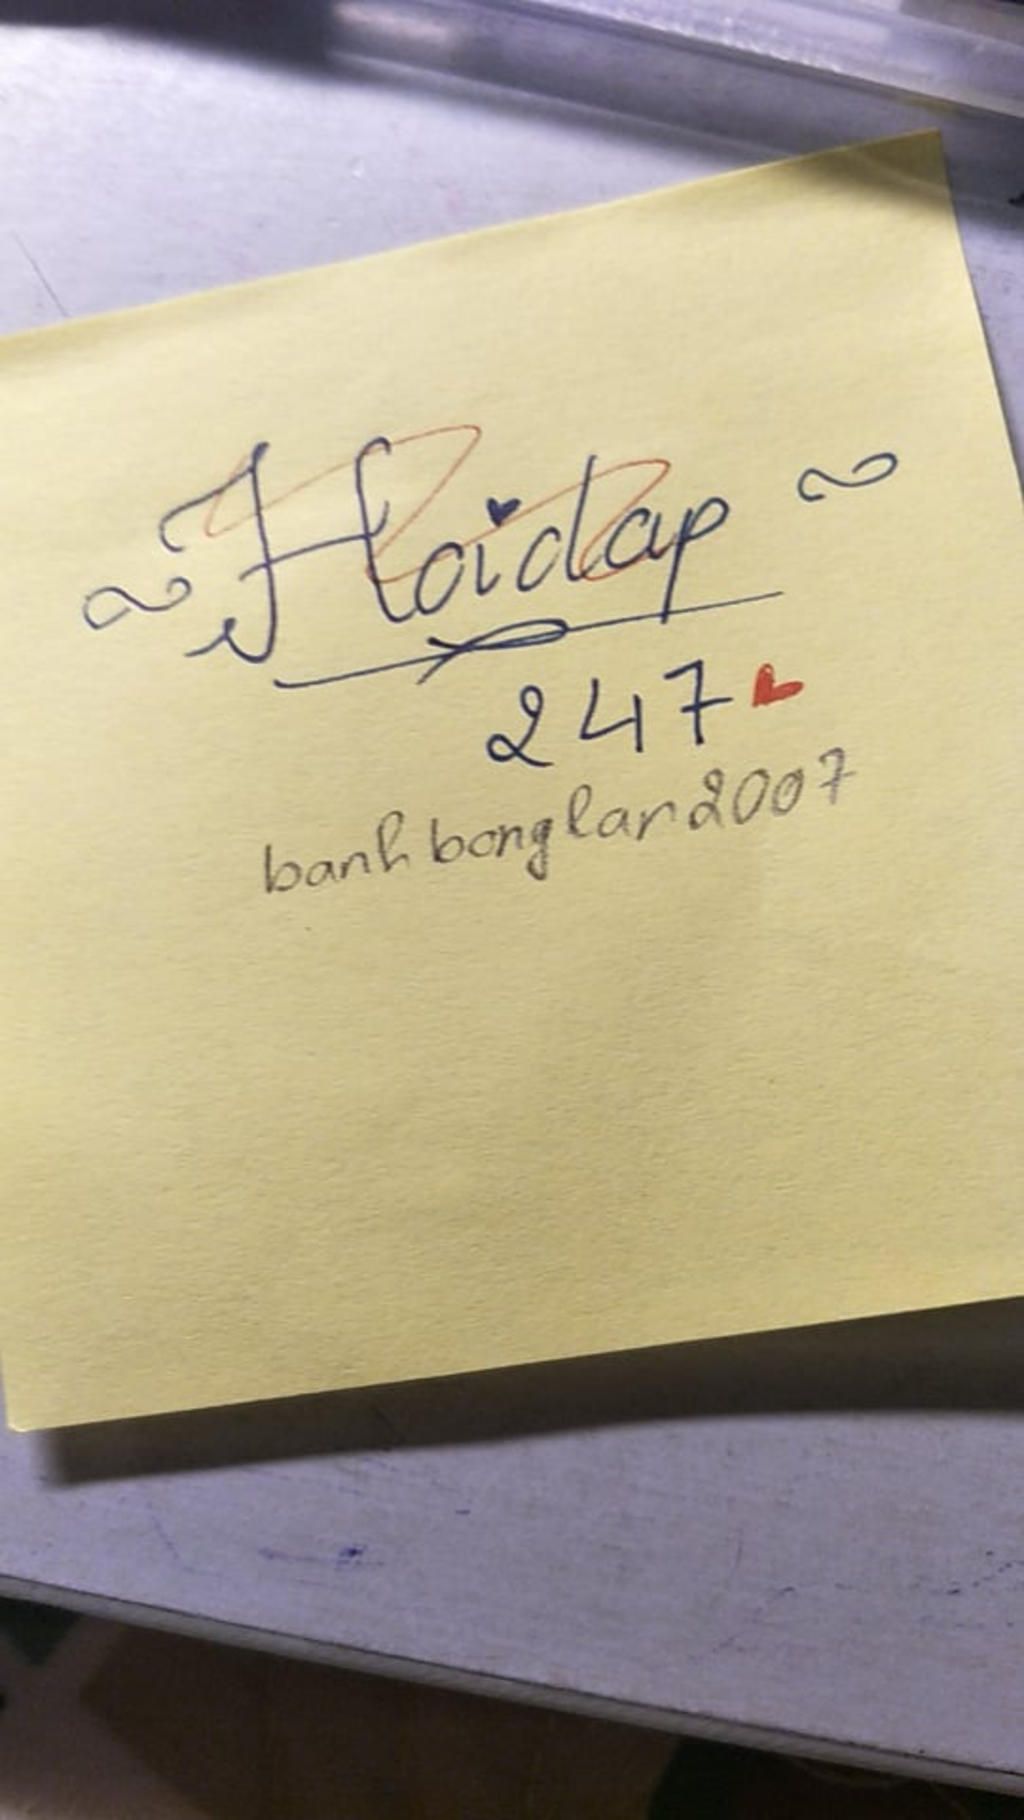 ~ Hoidap ~
247
banhbonglan2007